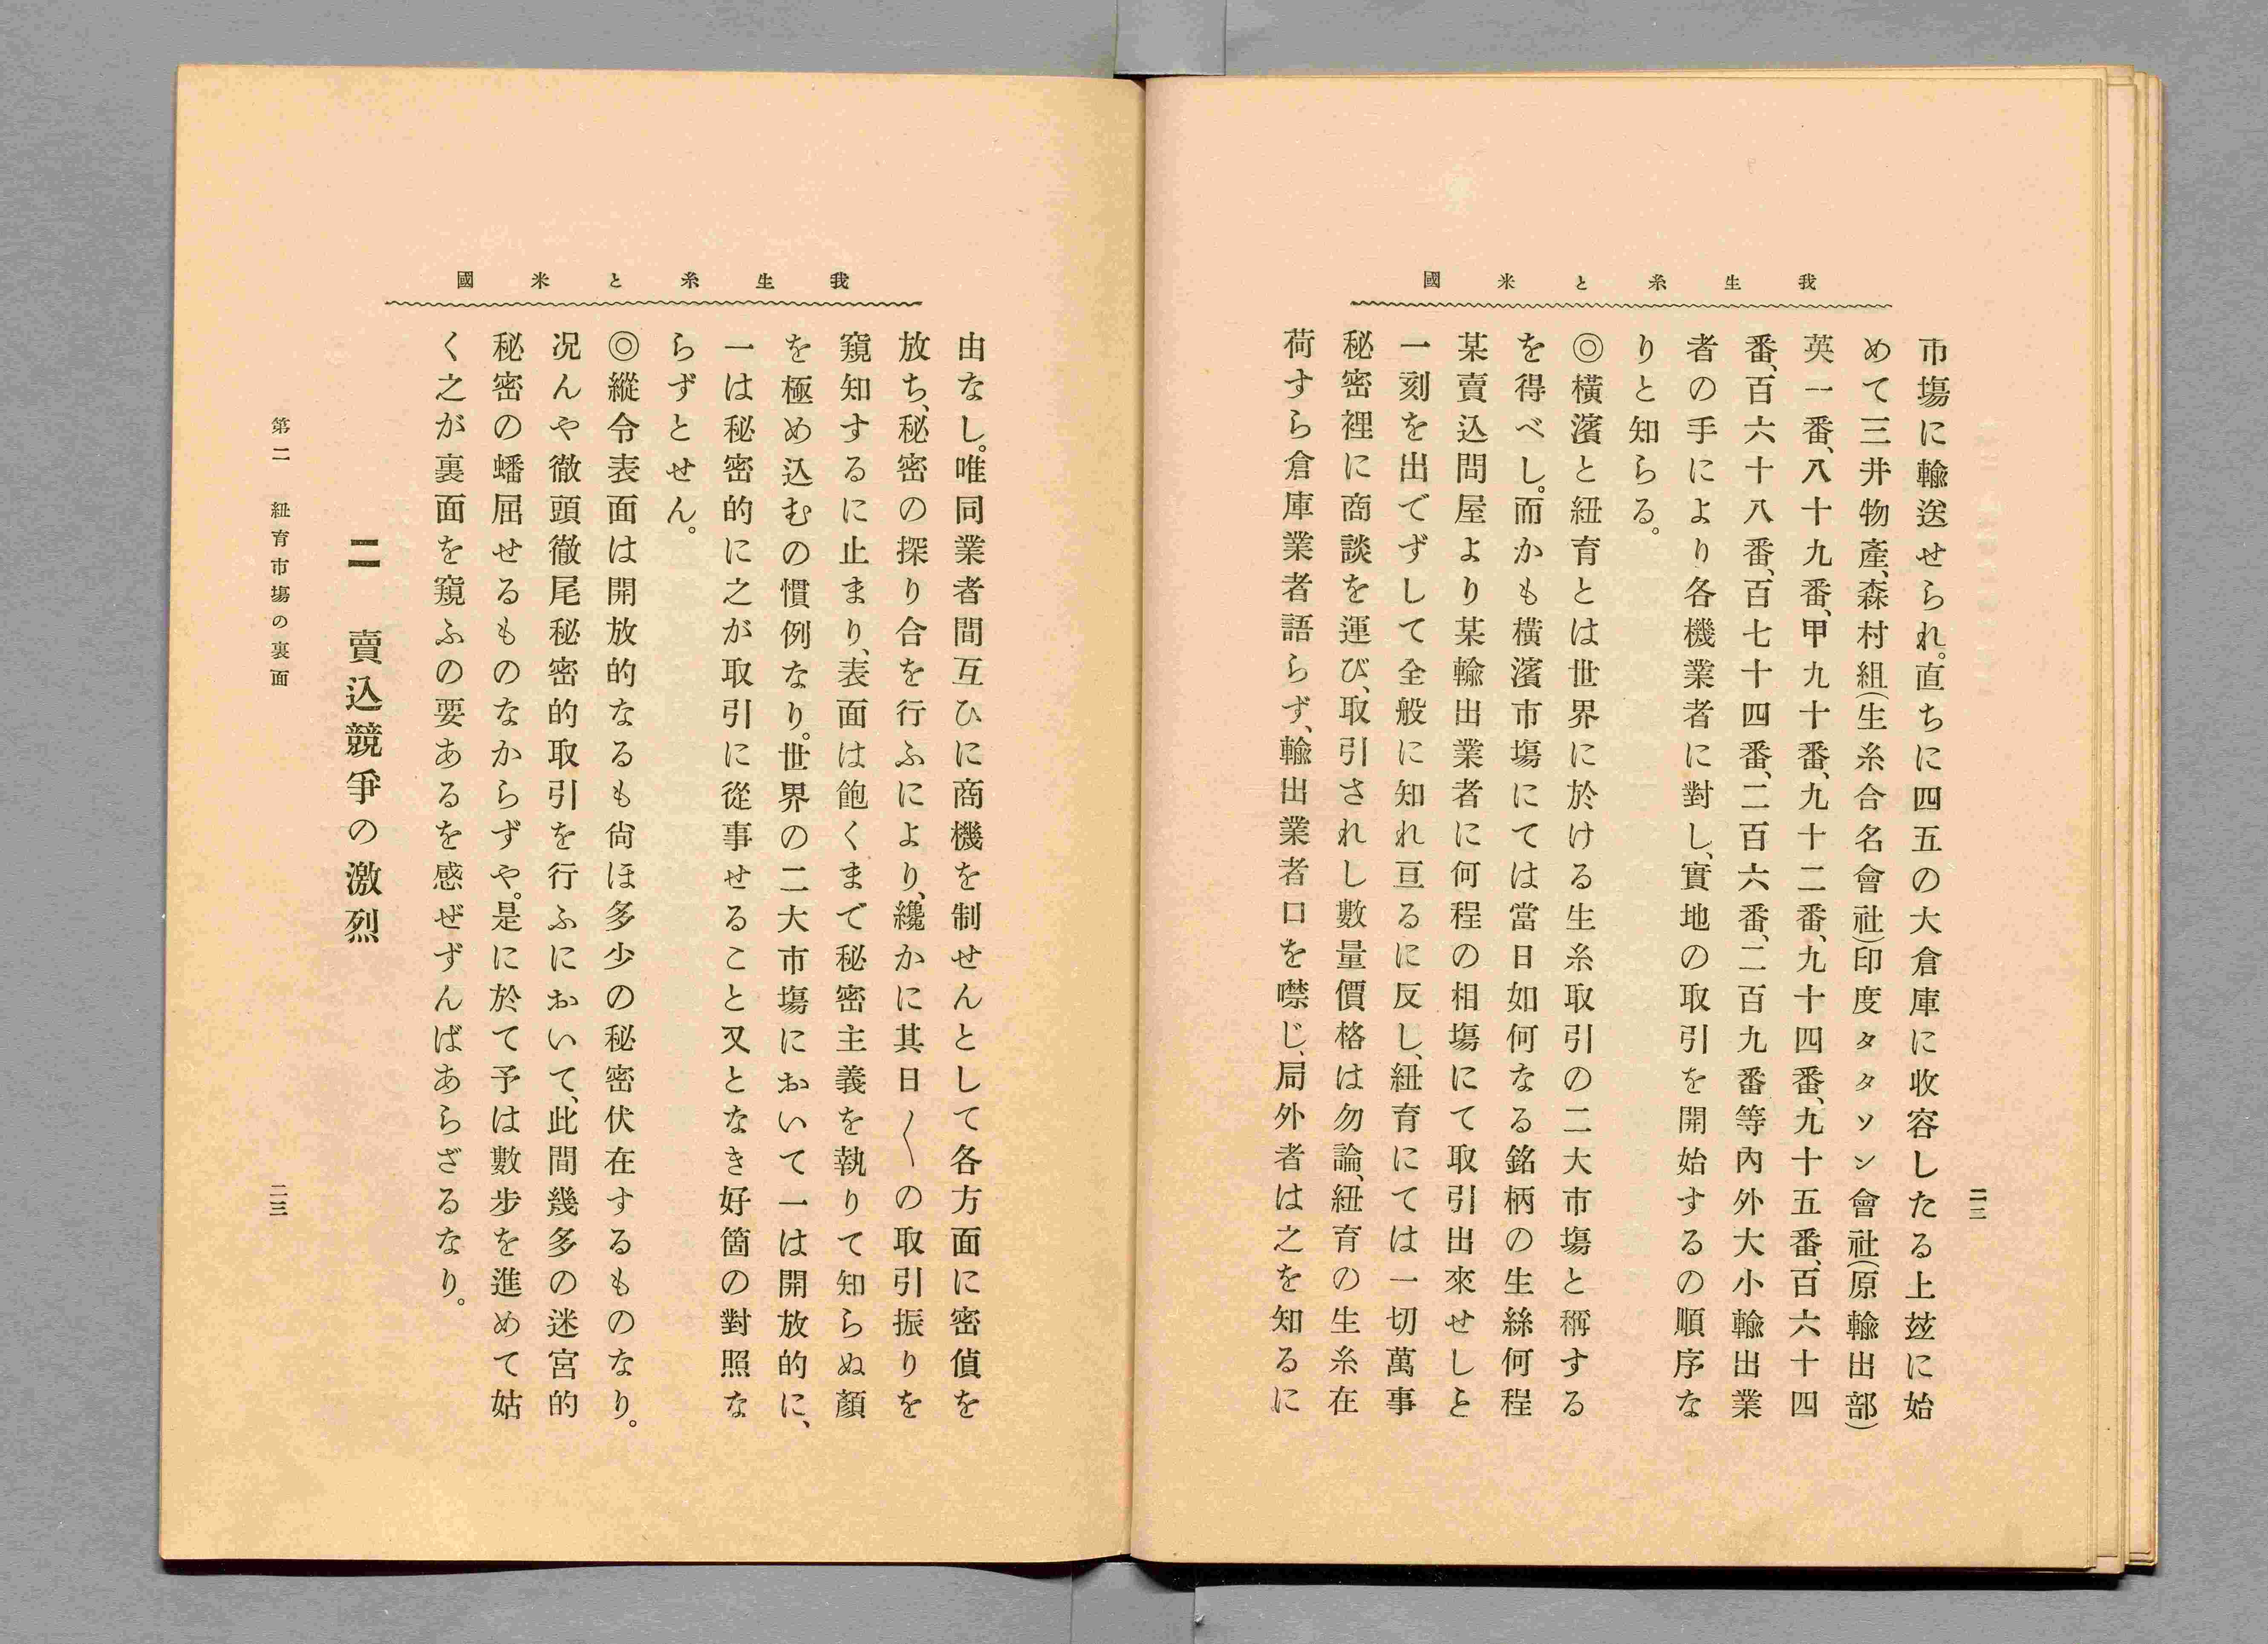 我生糸と米國
二二
市場に輸送せられ。直ちに四五の大倉庫に收容したる上玆に始
めて三井物產、森村組(生糸合名會社)印度タタソン會社(原輸出部)
英一番、八十九番、甲九十番、九十二番、九十四番、九十五番、百六十四
番、百六十八番、百七十四番、二百六番、二百九番等內外大小輸出業
者の手により各機業者に對し、實地の取引を開始するの順序な
りと知らる。
◎橫濱と紐育とは世界に於ける生糸取引の二大市場と稱する
を得べし。而かも橫濱市場にては當日如何なる銘柄の生絲何程
某賣込問屋より某輸出業者に何程の相場にて取引出來せしと
一刻を出でずして全般に知れ亘るに反し、紐育にては一切萬事
秘密裡に商談を運び、取引されし數量價格は勿論、紐育の生糸在
荷すら倉庫業者語らず、輸出業者口を噤じ、局外者は之を知るに
我生糸と米國
由なし。唯同業者間互ひに商機を制せんとして各方面に密偵を
放ち、秘密の探り合を行ふにより、纔かに其日〱の取引振りを
窺知するに止まり、表面は飽くまで秘密主義を執りて知らぬ顏
を極め込むの慣例なり。世界の二大市場において一は開放的に、
一は秘密的に之が取引に從事せること又となき好箇の對照な
らずとせん。
◎縱令表面は開放的なるも尙ほ多少の秘密伏在するものなり。
况んや徹頭徹尾秘密的取引を行ふにおいて、此間幾多の迷宮的
秘密の蟠屈せるものなからずや。是に於て予は數步を進めて姑
く之が裏面を窺ふの要あるを感ぜずんばあらざるなり。
二　賣込競爭の激烈
第二　紐育市場の裏面
二三